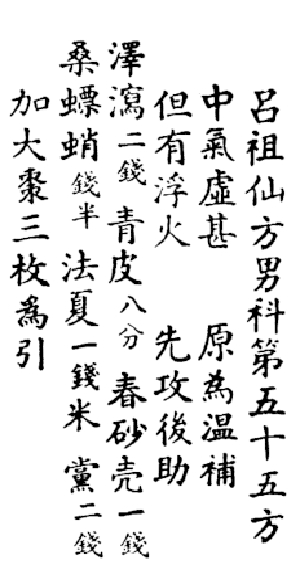 呂祖仙方男科第五十五方
中氣虛甚　原為温補
但有浮火　先攻後助
澤瀉二錢　青皮八分　春砂壳一錢
桑螵蛸錢半　法夏一錢米　黨二錢
加大棗三枚為引